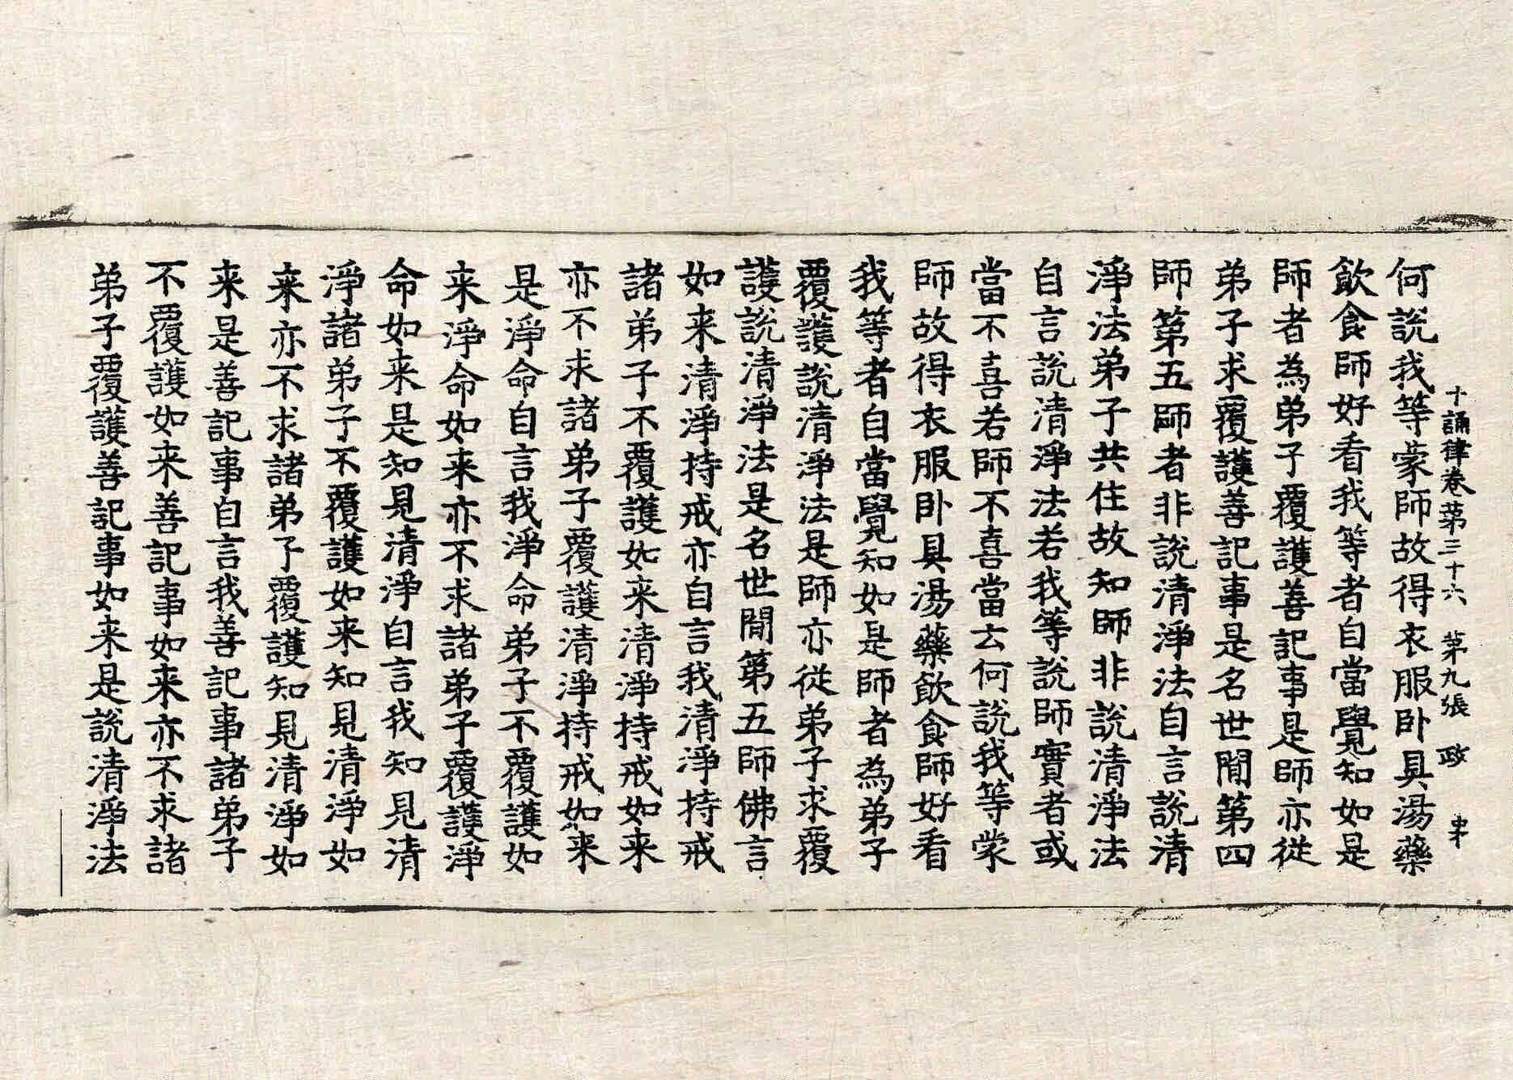 十誦律卷第三十六　第九張　政
何說我等蒙師故得衣服卧具湯藥
飲食師好看我等者自當覺知如是
師者為弟子覆護善記事是師亦從
弟子求覆護善記事是名世間第四
師第五師者非說清淨法自言說清
淨法弟子共住故知師非說清淨法
自言說清淨法若我等說師實者或
當不喜若師不喜當云何說我等蒙
師故得衣服卧具湯藥飲食師好看
我等者自當覺知如是師者為弟子
覆護說清淨法是師亦從弟子求覆
護說清淨法是名世間第五師佛言
如来清淨持戒亦自言我清淨持戒
諸弟子不覆護如来清淨持戒如来
亦不求諸弟子覆護清淨持戒如来
是淨命自言我淨命弟子不覆護如
来淨命如来亦不求諸弟子覆護淨
命如来是知見清淨自言我知見清
淨諸弟子不覆護如来知見清淨如
来亦不求諸弟子覆護知見清淨如
来是善記事自言我善記事諸弟子
不覆護如来善記事如来亦不求諸
弟子覆護善記事如来是說清淨法